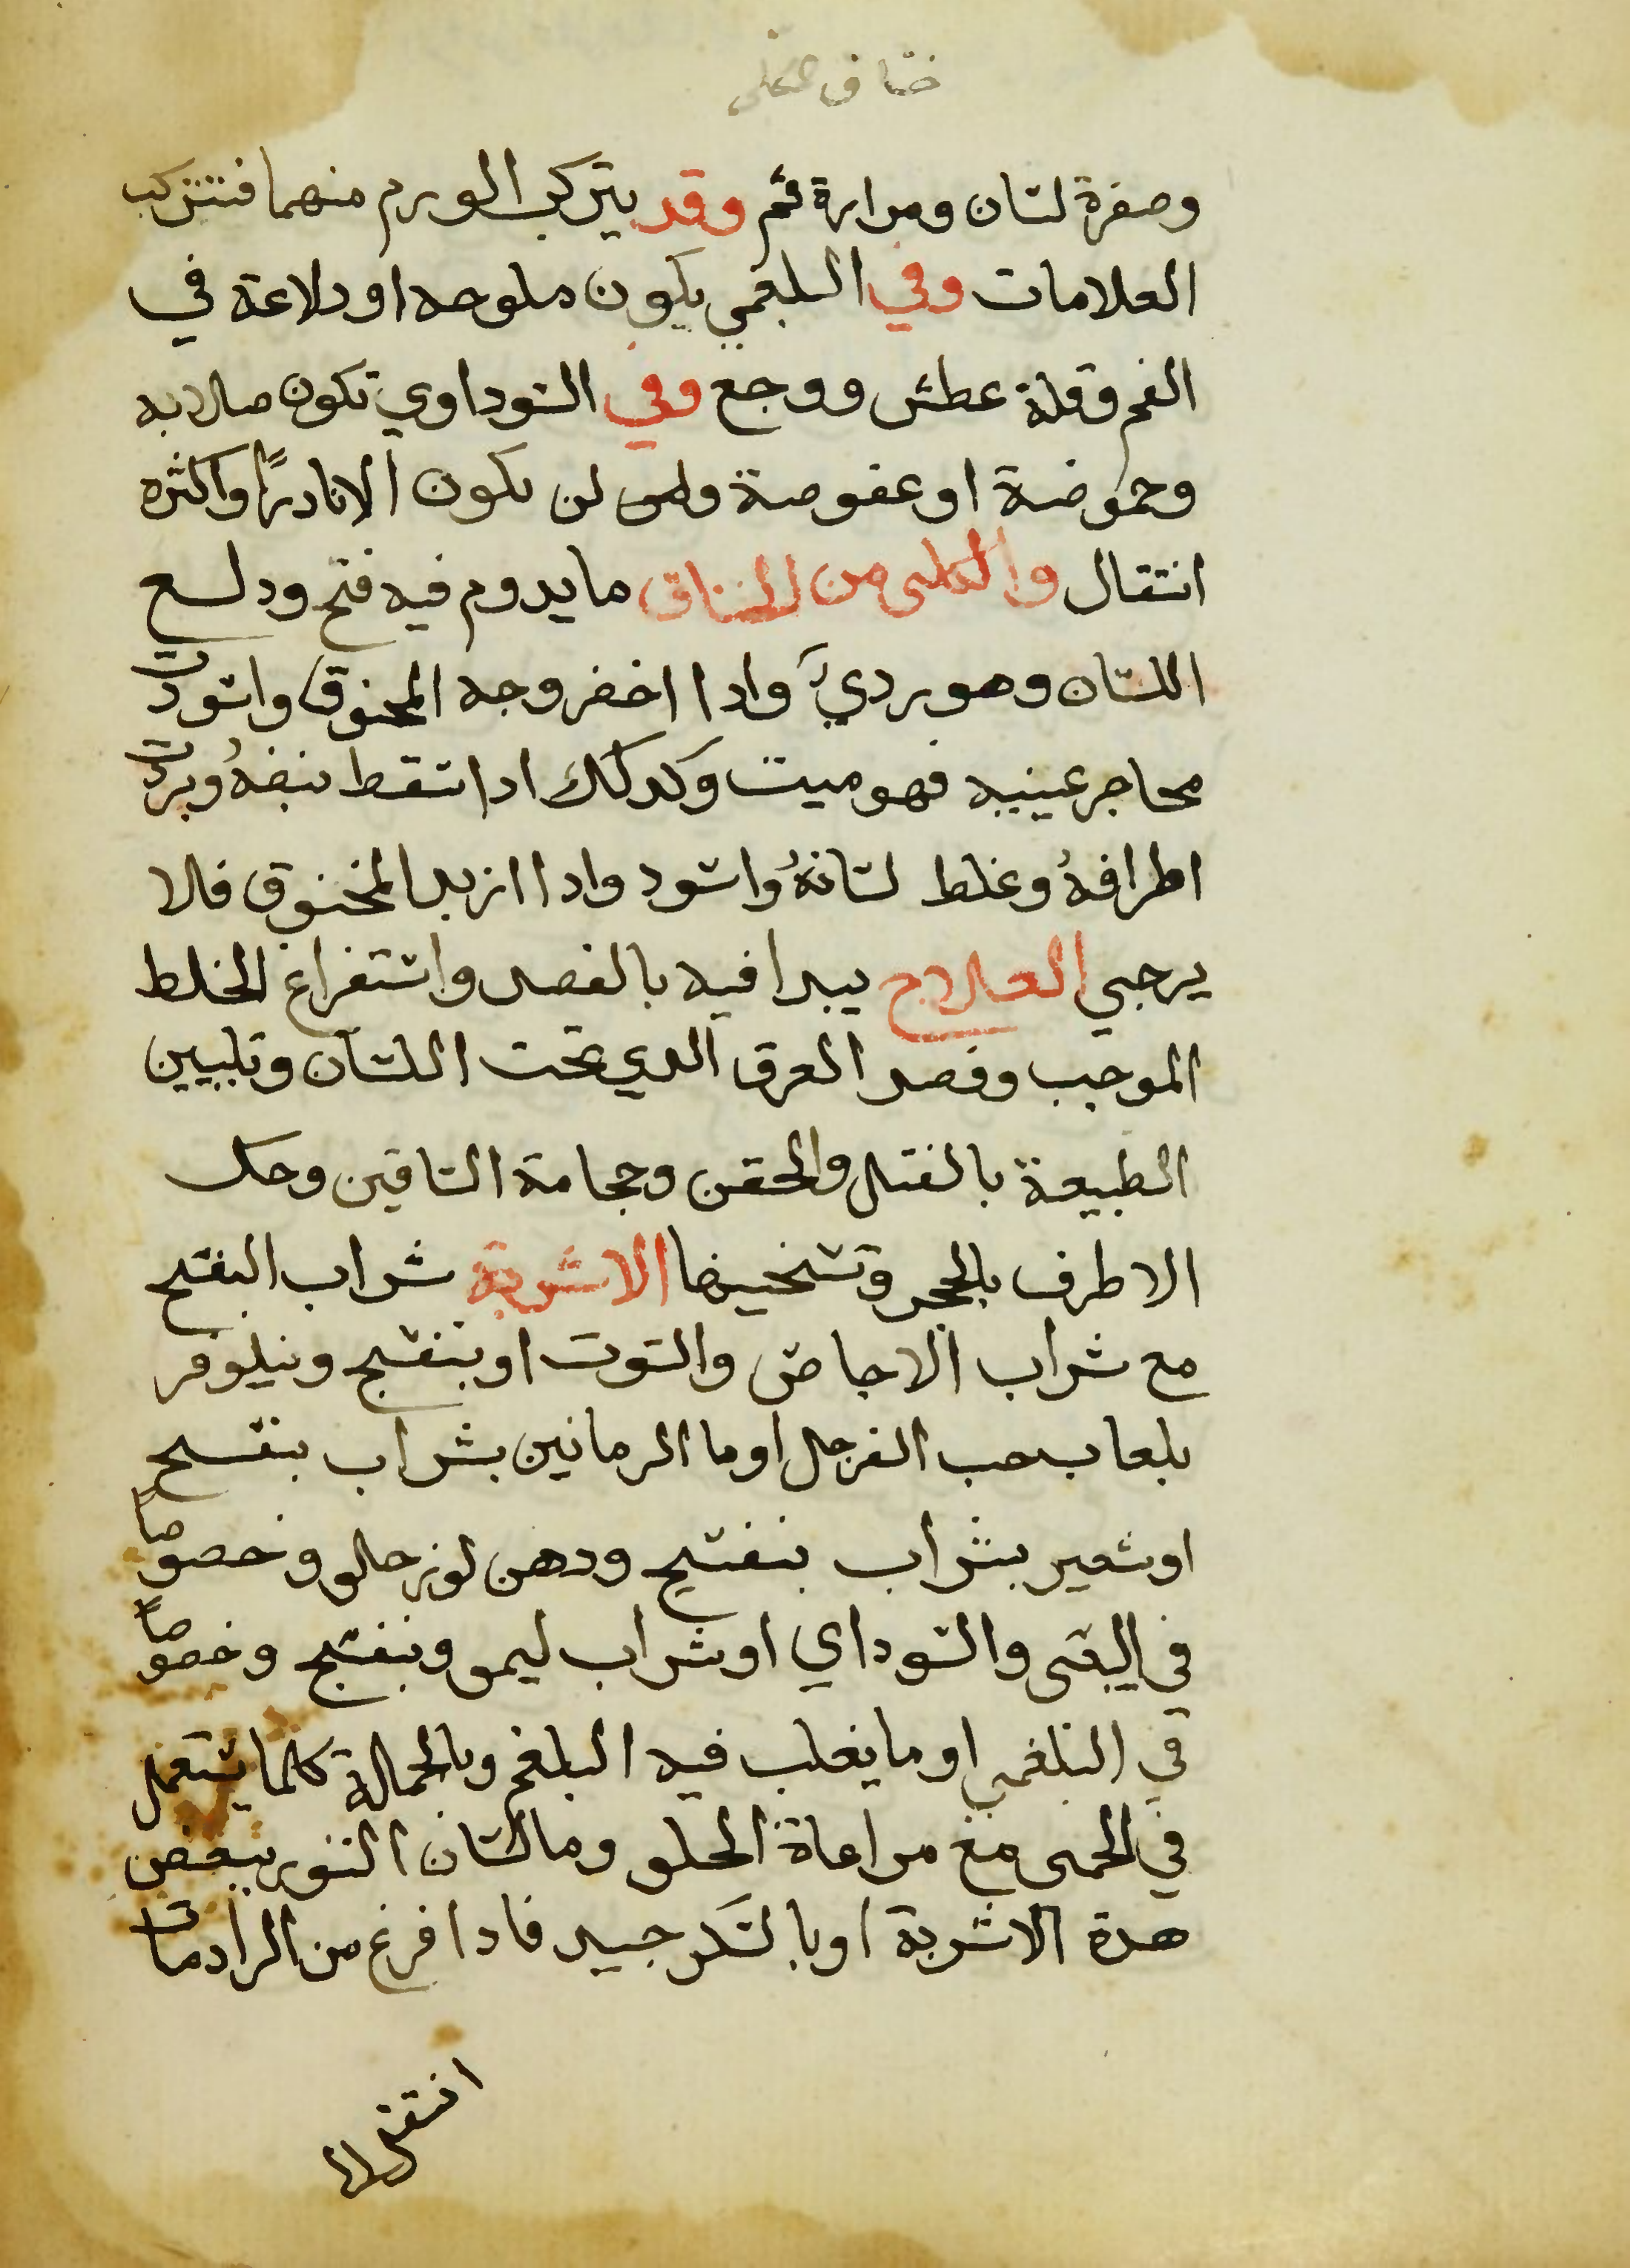 خناق الكلبى
وصفرة لسان ومرارة فم وقد يتركب الورم منهما فتتركب
العلامات وفي البلغمي يكون ملوحه او دلاعة في
الفم وقلة عطش ووجع وفي السوداوي تكون صلابه
وحموضة او عفوصة ولس لن يكون الا نادرًا واكثره
انتقال والكلبى من الخناق ما يدوم فيه فتح ودلع
اللسان وهو ردي وادا اخضر وجه المخنوق واسودت
محاجر عينيه فهو ميت وكدلك ادا سقط نبضهُ وبردت
اطرافهُ وغلط لسانهُ واسود وادا ازبد المخنوق فلا
يرجي العلاج يبدا فيه بالفصد واستفراغ الخلط
الموجب وفصد العرق الدي تحت اللسان وتليين
الطبيعة بالفتل والحقن وحجامة الساقين وحك
الاطرف بالحجر وتسخينها الاشربة شراب البنفسج
مع شراب الاجاص والتوت او بنفسج ونيلوفر
بلعاب حب السفرجل او ما الرمانين بشراب بنفسج
او شعير بشراب بنفسج ودهن لوز حلو وخصوصاً
في اليبس والسوداي او شراب ليمو وبنفسج وخصوصاً
في البلغمي او ما يغلب فيه البلغم وبالجملة كلما يستعمل
في الحمى مع مراعاة الحلق وما لسان الثور ببعض
هدة الاشربة او بالسكنجبين فادا فرغ من الرادعات
انتقل الى